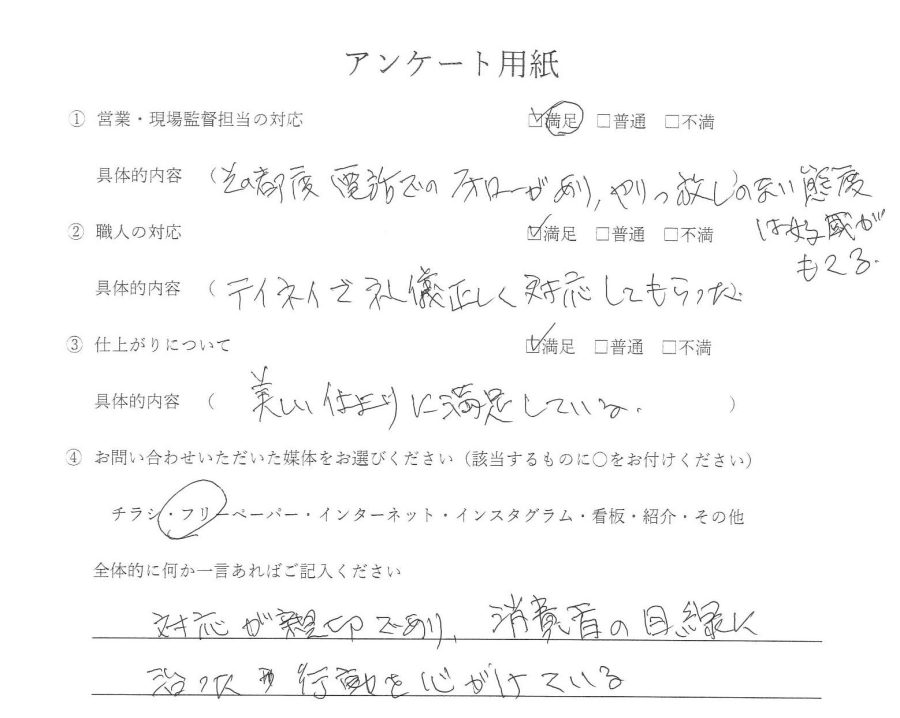 アンケート用紙
① 営業・現場監督担当の対応 ☑満足 □普通 □不満
具体的内容 （その都度 電話でのフォローがあり, やりっ放しのない態度
は好感が
もてる.
② 職人の対応 ☑満足 □普通 □不満
具体的内容 （ テイネイで礼儀正しく対応してもらった.
③ 仕上がりについて ☑満足 □普通 □不満
具体的内容 （ 美しい仕上りに満足している. ）
④ お問い合わせいただいた媒体をお選びください（該当するものに○をお付けください）
チラシ・フリーペーパー・インターネット・インスタグラム・看板・紹介・その他
全体的に何か一言あればご記入ください
対応が親切であり, 消費者の目線に
沿った 行動を心がけている